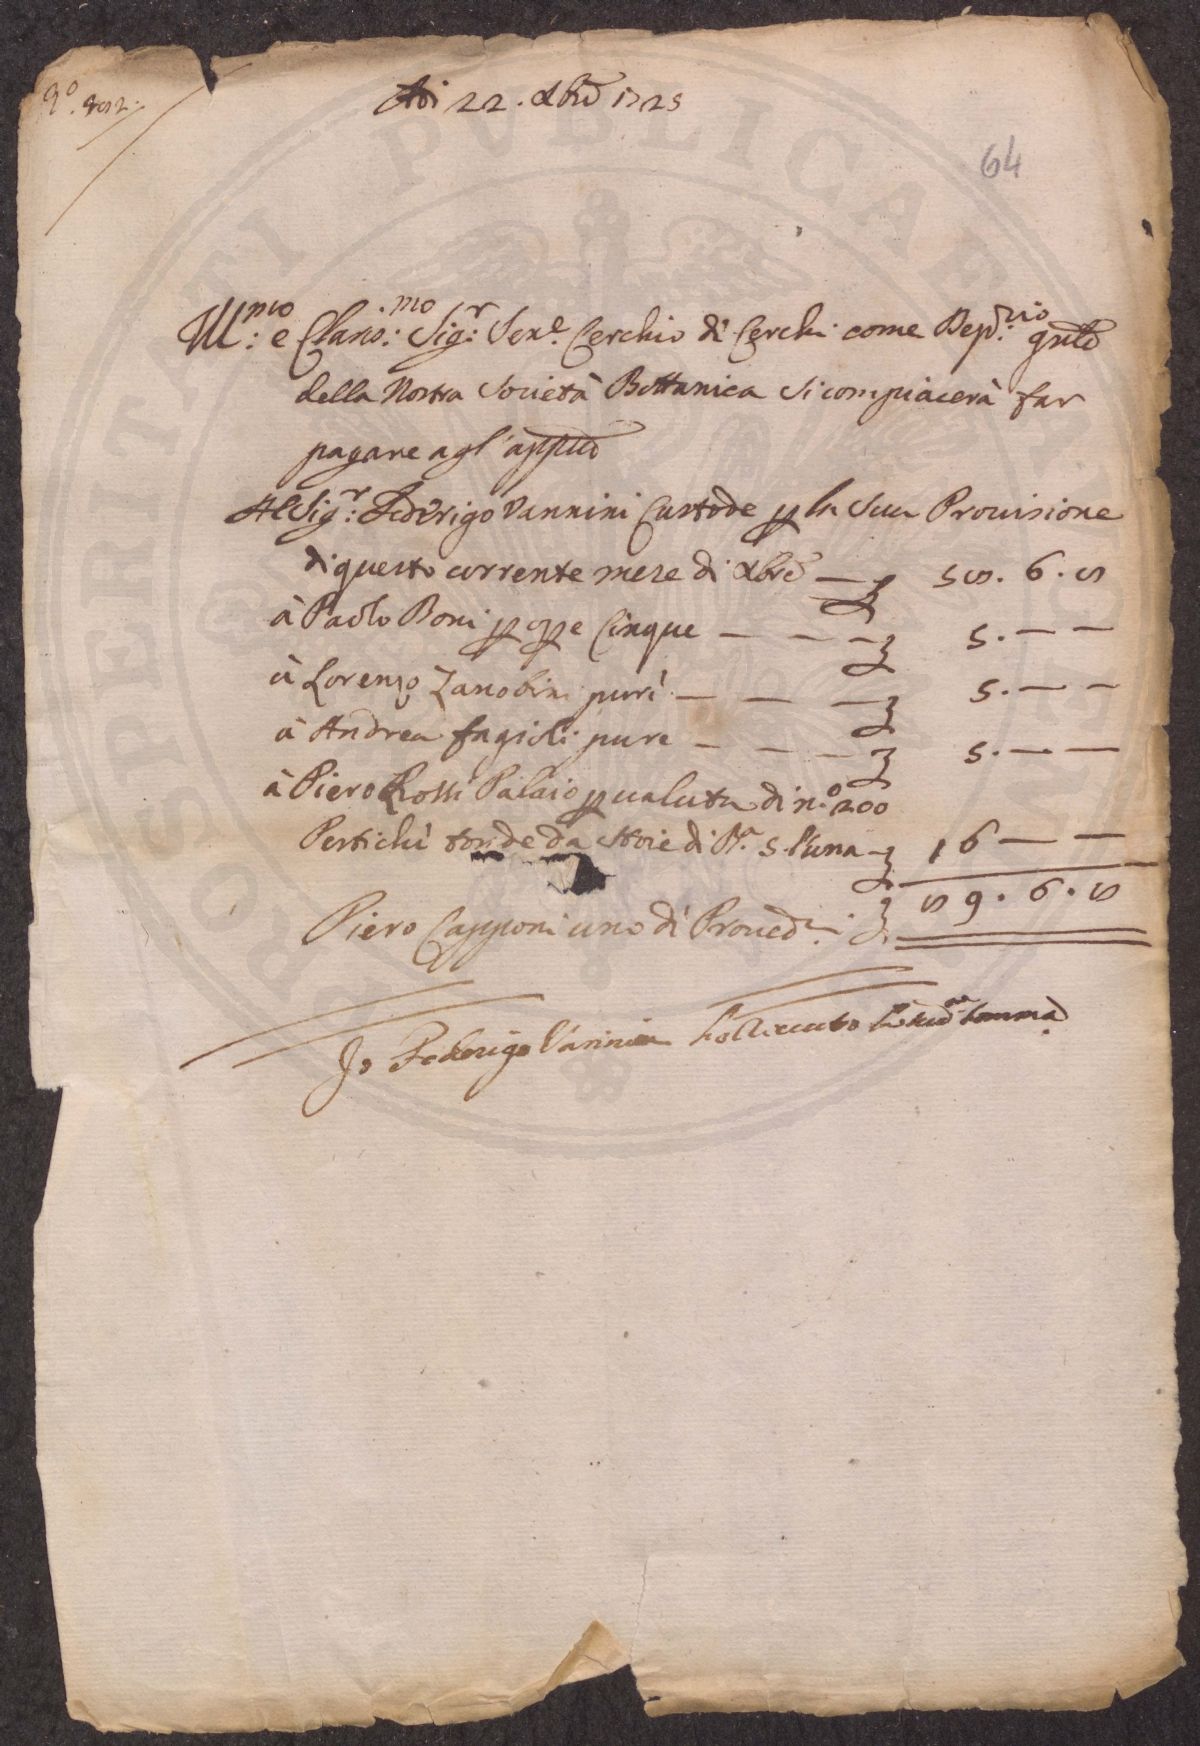 Adi 22. Xbre 1725
64
Ill:mo e Claris:mo Sig:r Sen:e Cerchio di Cerchi come Dep:rio gnle
della Nostra Società Bottanica si compiacerà far
pagare agl'appiè
Al Sig:r Federigo Vannini Custode p la sua Provisione
di questo corrente mese di Xbre — 6.
à Paolo Boni p opre Cinque — — — 5. — —
à Lorenzo Zanobini pure — — — 5. — —
à Andrea fagioli pure — — — 5. — —
à Piero Rossi Palaio p valuta di n.o 200
Pertiche tonde da stoie di 5 l'una 16 — —
9. 6.
Piero Capponi uno di Proved:ri
Io Federigo Vannini ho riceuto la sud.a somma
POSPERITATI PVBLICAE